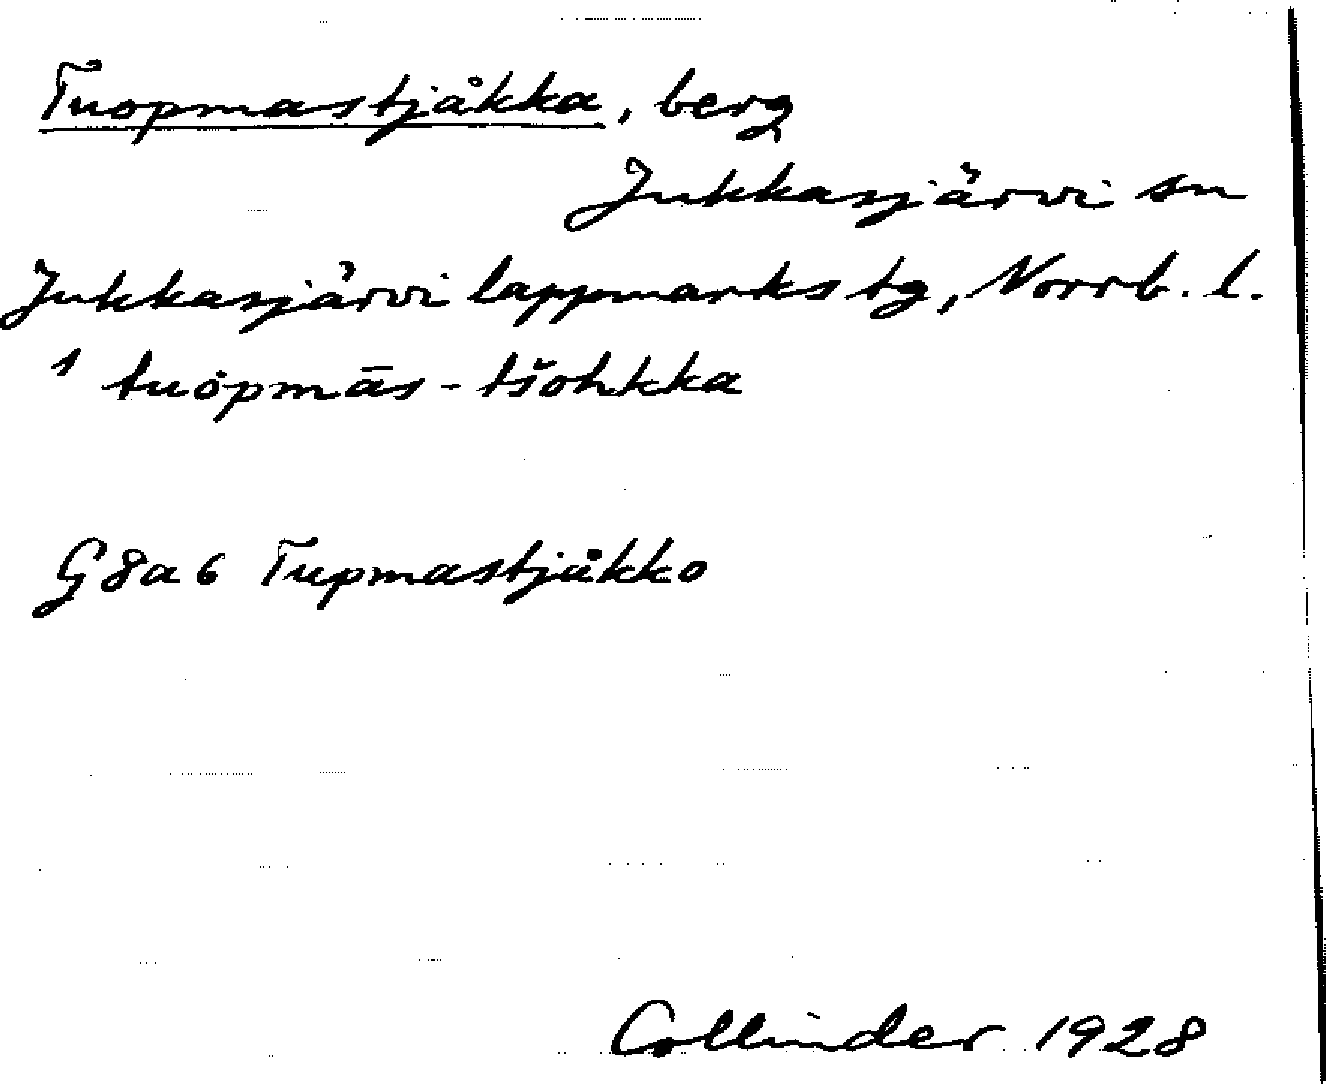 Tuopmastjåkka, berg
Jukkasjärvi sn
Jukkasjärvi lappmarks tg, Norrb. l.
1 tuȯpmās-tšohkka
G8a6 Tupmastjåkko
Collinder 1928